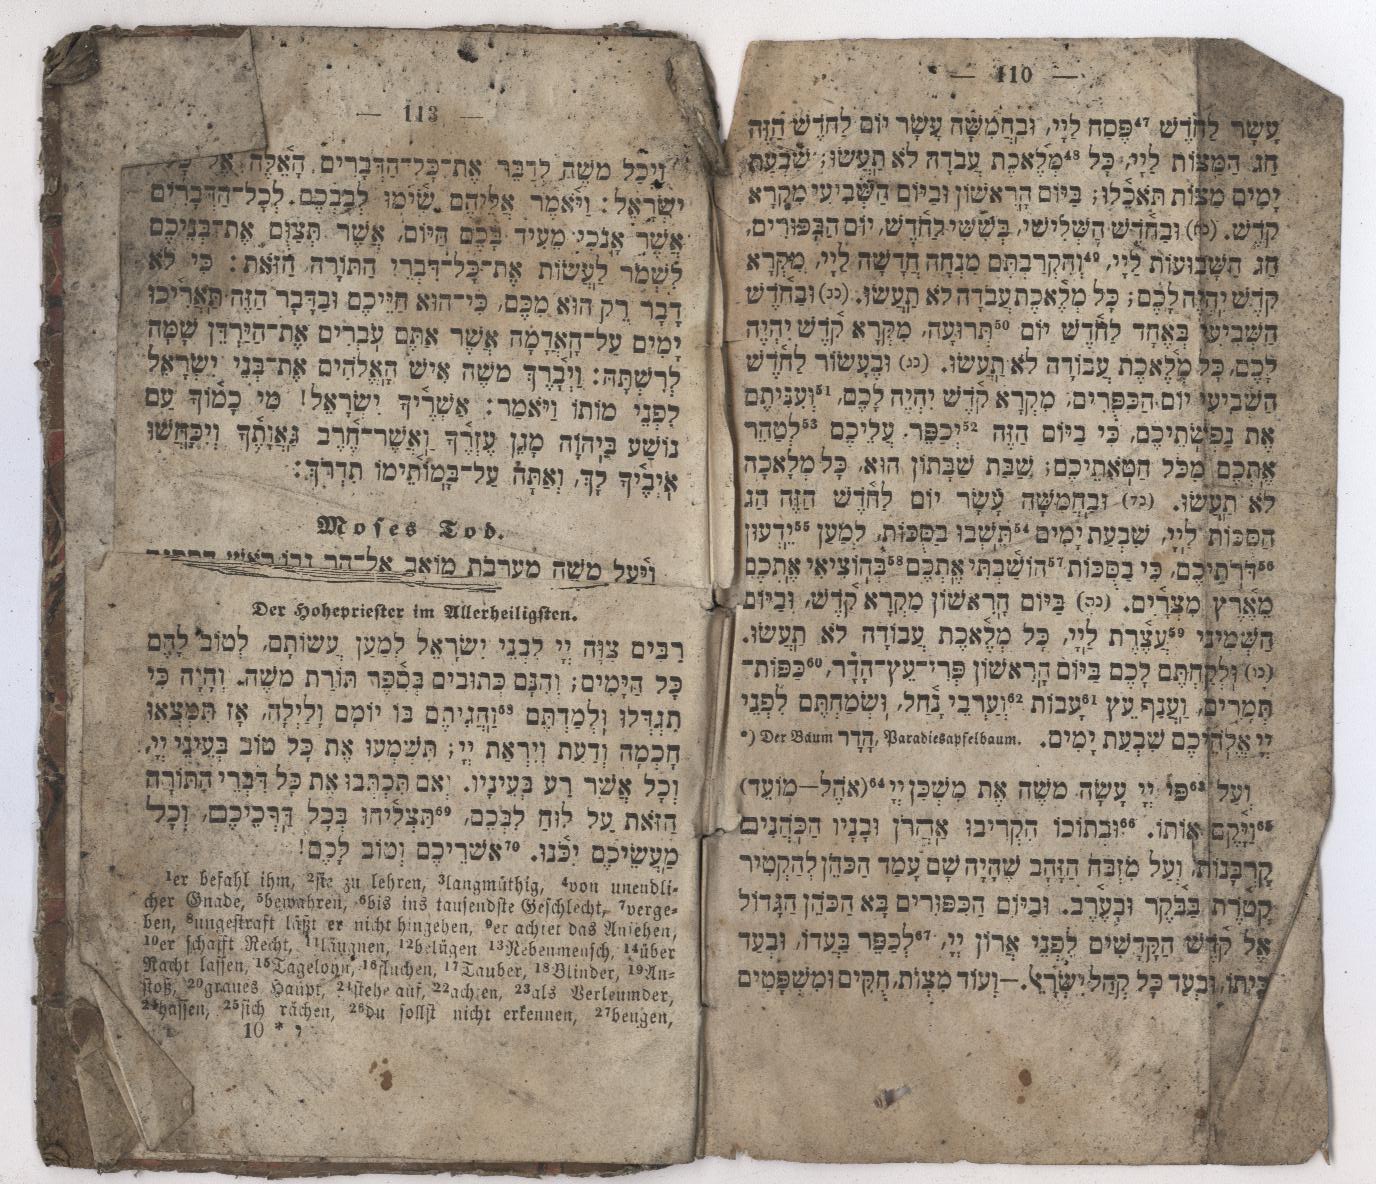 — 110 —
עָשָׂר לַחֹדֶשׁ ⁴⁷פֶּסַח לַיְיָ, וּבַחֲמִשָּׁה עָשָׂר יוֹם לַחֹדֶשׁ הַזֶּה
חַג הַמַּצּוֹת לַיְיָ, כָּל ⁴⁸מְלֶאכֶת עֲבֹדָה לֹא תַעֲשׂוּ; שִׁבְעַת
יָמִים מַצּוֹת תֹּאכֵלוּ; בַּיּוֹם הָרִאשׁוֹן וּבַיּוֹם הַשְּׁבִיעִי מִקְרָא
קֹדֶשׁ. וּבַחֹדֶשׁ הַשְּׁלִישִׁי, בְּשִׁשִּׁי לַחֹדֶשׁ, יוֹם הַבִּפּוּרִים,
חַג הַשָּׁבוּעוֹת לַיְיָ, ⁴⁹וְהִקְרַבְתֶּם מִנְחָה חֲדָשָׁה לַיְיָ, מִקְרָא
קֹדֶשׁ יִהְיֶה לָכֶם; כָּל מְלֶאכֶת עֲבֹדָה לֹא תַעֲשׂוּ. (כב) וּבַחֹדֶשׁ
הַשְּׁבִיעִי בְּאֶחָד לַחֹדֶשׁ יוֹם ⁵⁰תְּרוּעָה, מִקְרָא קֹדֶשׁ יִהְיֶה
לָכֶם, כָּל מְלֶאכֶת עֲבוֹדָה לֹא תַעֲשׂוּ. (כג) וּבֶעָשׂוֹר לַחֹדֶשׁ
הַשְּׁבִיעִי יוֹם הַכִּפֻּרִים, מִקְרָא קֹדֶשׁ יִהְיֶה לָכֶם, ⁵¹וְעִנִּיתֶם
אֶת נַפְשֹׁתֵיכֶם, כִּי בַיּוֹם הַזֶּה ⁵²יְכַפֵּר עֲלֵיכֶם ⁵³לְטַהֵר
אֶתְכֶם מִכֹּל חַטֹּאתֵיכֶם; שַׁבַּת שַׁבָּתוֹן הוּא, כָּל מְלָאכָה
לֹא תַעֲשׂוּ. (כד) וּבַחֲמִשָּׁה עָשָׂר יוֹם לַחֹדֶשׁ הַזֶּה חַג
הַסֻּכּוֹת לַיְיָ, שִׁבְעַת יָמִים ⁵⁴תֵּשְׁבוּ בַסֻּכּוֹת, לְמַעַן ⁵⁵יֵדְעוּ
⁵⁶דֹּרֹתֵיכֶם, כִּי בַסֻּכּוֹת ⁵⁷הוֹשַׁבְתִּי אֶתְכֶם ⁵⁸בְּהוֹצִיאִי אֶתְכֶם
מֵאֶרֶץ מִצְרָיִם. (כה) בַּיּוֹם הָרִאשׁוֹן מִקְרָא קֹדֶשׁ, וּבַיּוֹם
הַשְּׁמִינִי ⁵⁹עֲצֶרֶת לַיְיָ, כָּל מְלֶאכֶת עֲבוֹדָה לֹא תַעֲשׂוּ.
(כו) וּלְקַחְתֶּם לָכֶם בַּיּוֹם הָרִאשׁוֹן פְּרִי־עֵץ־הָדָר, ⁶⁰כַּפּוֹת־
תְּמָרִים, וַעֲנַף עֵץ ⁶¹עָבוֹת ⁶²וְעַרְבֵי נָחַל, וּשְׂמַחְתֶּם לִפְנֵי
יְיָ אֱלֹהֵיכֶם שִׁבְעַת יָמִים. *) Der Baum הָדָר, Paradiesapfelbaum.
וְעַל ⁶³פִּי יְיָ עָשָׂה מֹשֶׁה אֶת מִשְׁכַּן יְיָ ⁶⁴(אֹהֶל—מוֹעֵד)
⁶⁵וַיָּקֶם אוֹתוֹ. ⁶⁶וּבְתוֹכוֹ הִקְרִיבוּ אַהֲרֹן וּבָנָיו הַכֹּהֲנִים
קָרְבָּנוֹת, וְעַל מִזְבַּח הַזָּהָב שֶׁהָיָה שָׁם עָמַד הַכֹּהֵן לְהַקְטִיר
קְטֹרֶת בַּבֹּקֶר וּבָעֶרֶב. וּבַיּוֹם הַכִּפּוּרִים בָּא הַכֹּהֵן הַגָּדוֹל
אֶל קֹדֶשׁ הַקֳּדָשִׁים לִפְנֵי אֲרוֹן יְיָ, ⁶⁷לְכַפֵּר בַּעֲדוֹ, וּבְעַד
בֵּיתוֹ, וּבְעַד כָּל קְהַל יִשְׂרָאֵל.—וְעוֹד מִצְוֹת, חֻקִּים וּמִשְׁפָּטִים
— 113 —
וַיְכַל מֹשֶׁה לְדַבֵּר אֶת־כָּל־הַדְּבָרִים הָאֵלֶּה אֶל כָּל
יִשְׂרָאֵל: וַיֹּאמֶר אֲלֵיהֶם שִׂימוּ לְבַבְכֶם לְכָל־הַדְּבָרִים
אֲשֶׁר אָנֹכִי מֵעִיד בָּכֶם הַיּוֹם, אֲשֶׁר תְּצַוֻּם אֶת־בְּנֵיכֶם
לִשְׁמֹר לַעֲשׂוֹת אֶת־כָּל־דִּבְרֵי הַתּוֹרָה הַזֹּאת: כִּי לֹא
דָבָר רֵק הוּא מִכֶּם, כִּי־הוּא חַיֵּיכֶם וּבַדָּבָר הַזֶּה תַּאֲרִיכוּ
יָמִים עַל־הָאֲדָמָה אֲשֶׁר אַתֶּם עֹבְרִים אֶת־הַיַּרְדֵּן שָׁמָּה
לְרִשְׁתָּהּ: וַיְבָרֶךְ מֹשֶׁה אִישׁ הָאֱלֹהִים אֶת־בְּנֵי יִשְׂרָאֵל
לִפְנֵי מוֹתוֹ וַיֹּאמַר: אַשְׁרֶיךָ יִשְׂרָאֵל! מִי כָמוֹךָ עַם
נוֹשַׁע בַּיהוָֹה מָגֵן עֶזְרֶךָ וַאֲשֶׁר־חֶרֶב גַּאֲוָתֶךָ וְיִכָּחֲשׁוּ
אֹיְבֶיךָ לָךְ, וְאַתָּה עַל־בָּמוֹתֵימוֹ תִדְרֹךְ:
Moses Tod.
וַיַּעַל מֹשֶׁה מֵעַרְבֹת מוֹאָב אֶל־הַר נְבוֹ רֹאשׁ הַפִּסְגָּה
Der Hohepriester im Allerheiligsten.
רַבִּים צִוָּה יְיָ לִבְנֵי יִשְׂרָאֵל לְמַעַן עֲשׂוֹתָם, לְטוֹב לָהֶם
כָּל הַיָּמִים; וְהִנָּם כְּתוּבִים בְּסֵפֶר תּוֹרַת מֹשֶׁה. וְהָיָה כִּי
תִגְדְּלוּ וּלְמַדְתֶּם ⁶⁸וַהֲגִיתֶם בּוֹ יוֹמָם וָלַיְלָה, אָז תִּמְצְאוּ
חָכְמָה וְדַעַת וְיִרְאַת יְיָ; תִּשְׁמְעוּ אֶת כָּל טוֹב בְּעֵינֵי יְיָ,
וְכָל אֲשֶׁר רַע בְּעֵינָיו. וְאִם תִּכְתְּבוּ אֶת כָּל דִּבְרֵי הַתּוֹרָה
הַזֹּאת עַל לוּחַ לִבְּכֶם, ⁶⁹תַּצְלִיחוּ בְּכָל דַּרְכֵיכֶם, וְכָל
מַעֲשֵׂיכֶם יִכֹּנוּ. ⁷⁰אַשְׁרֵיכֶם וְטוֹב לָכֶם!
¹er befahl ihm, ²sie zu lehren, ³langmüthig, ⁴von unendli-
cher Gnade, ⁵bewahren, ⁶bis ins tausendste Geschlecht, ⁷verge-
ben, ⁸ungestraft läßt er nicht hingehen, ⁹er achtet das Ansehen,
¹⁰er schafft Recht, ¹¹läugnen, ¹²belügen ¹³Nebenmensch, ¹⁴über
Nacht lassen, ¹⁵Tagelohn, ¹⁶fluchen, ¹⁷Tauber, ¹⁸Blinder, ¹⁹An-
stoß, ²⁰graues Haupt, ²¹stehe auf, ²²achten, ²³als Verleumder,
²⁴hassen, ²⁵sich rächen, ²⁶du sollst nicht erkennen, ²⁷beugen,
10 * י